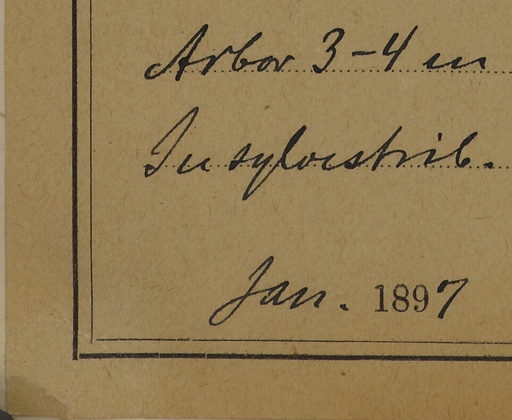 Arbor 3-4 m
In sylvestrib.
Jan. 1897